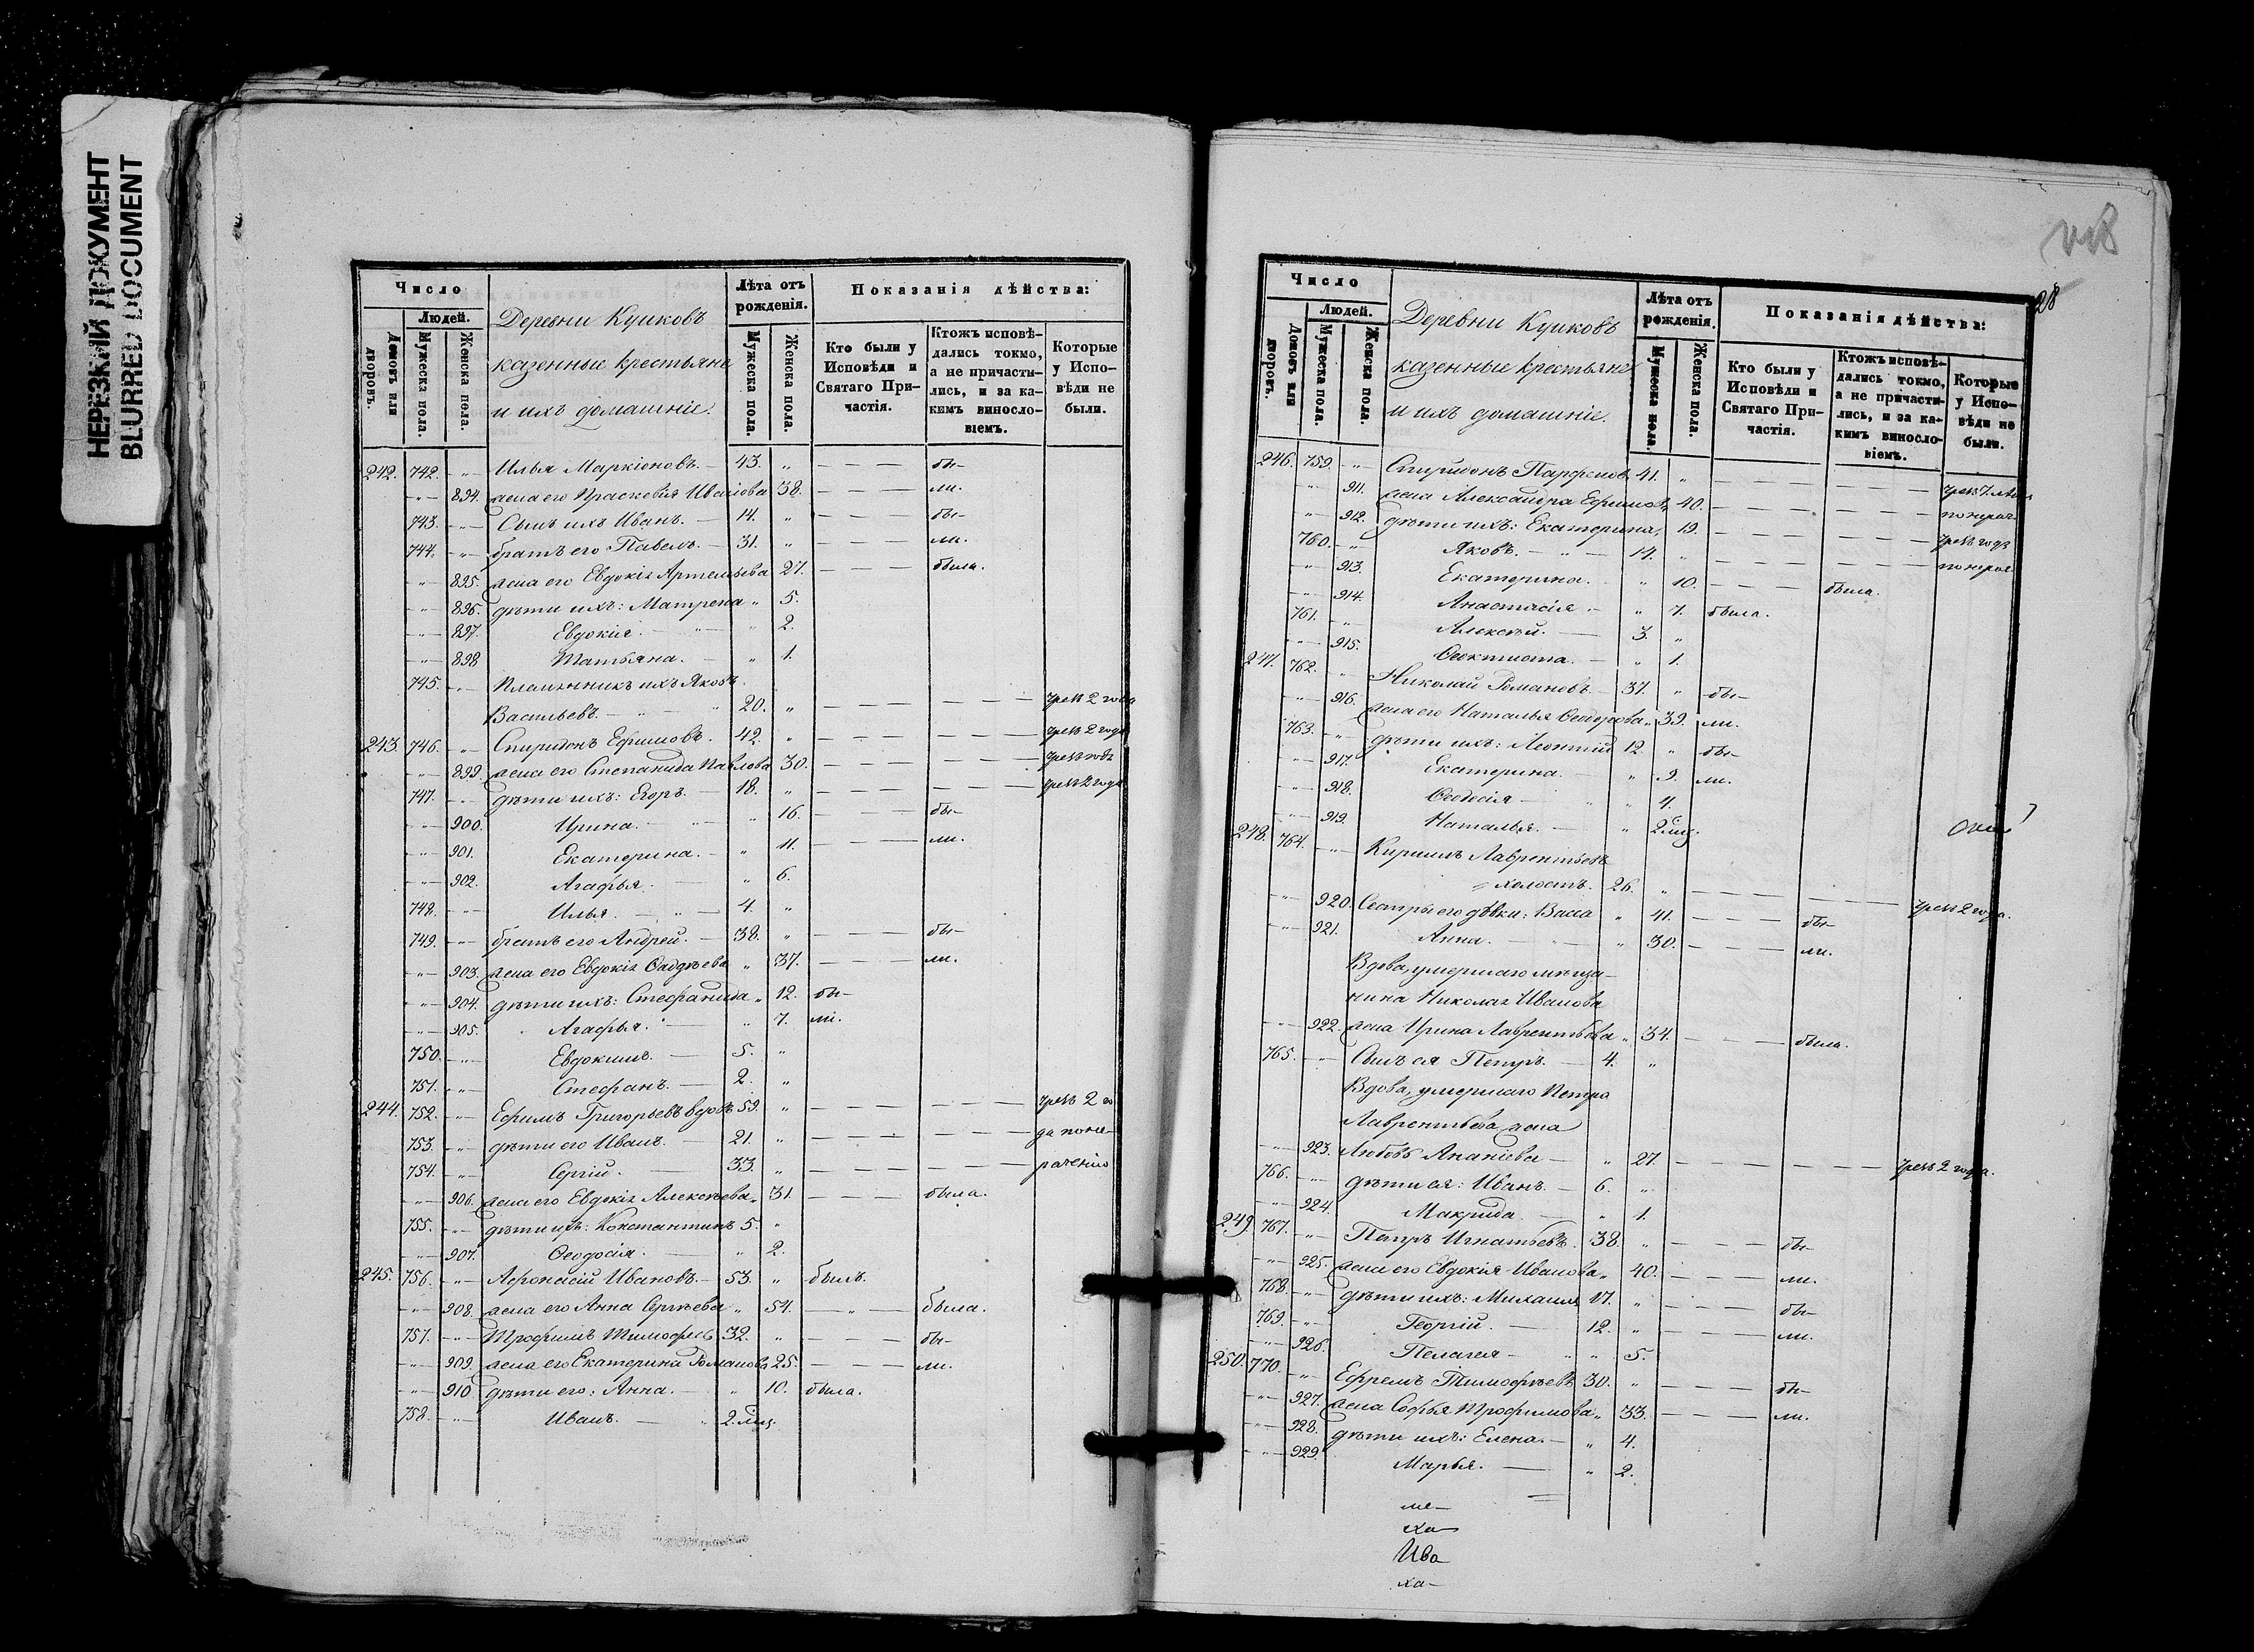 НЕРЕЗКИЙ ДОКУМЕНТ
BLURRED DOCUMENT
Число
Людей.
Домовъ или дворовъ.
Мужеска пола.
Женска пола.
Деревни Куиковъ
казенные крестьяне
и ихъ домашніе.
Лѣта отъ рожденія.
Мужеска пола.
Женска пола.
Показанія дѣйства:
Кто были у Исповѣди и Святаго Причастія.
Ктожъ исповѣдались токмо, а не причастились, и за какимъ винословіемъ.
Которые у Исповѣди не были.
242. 742. -"- Илья Маркіоновъ. — 43. " — — — бы-
-"- 894. жена его Праскевія Иванова 38. — — — ли.
743. -"- Сынъ ихъ Иванъ. — 14. " — — — бы-
744. -"- братъ его Павелъ. — 31. " — — — ли.
-"- 895. жена его Евдокія Артемьева 27. — — — была.
-"- 896. дѣти ихъ: Матрена " 5.
-"- 897. Евдокія. — " 2.
-"- 898 Татьяна. — " 1.
745. -"- Племянникъ ихъ Яковъ
Васильевъ. — 20. " — — — — — — чрезъ 2 года
243. 746. -"- Спиридонъ Ефимовъ. 42. " — — — — — — чрезъ 2 года
-"- 899. жена его Степанида Павлова 30. — — — — — — чрезъ годъ
747. -"- дѣти ихъ: Егоръ. — 18. " — — — — — — чрезъ 2 года
-"- 900. Ирина. — " 16. — — — бы-
-"- 901. Екатерина. — " 11. — — — ли.
-"- 902. Агафья. — " 6.
748. -"- Илья. — " — 4. "
749. -"- братъ его Андрей. — 38. " — — — бы-
-"- 903. жена его Евдокія Фаддѣева " 37. — — — ли.
-"- 904. дѣти ихъ: Стефанида " 12. бы-
-"- 905. Агафья. — " 7. ли.
750. -"- Евдокимъ. — 5. "
751. -"- Стефанъ. — 2. "
244. 752. -"- Ефимъ Григорьевъ вдовъ 59. " — — — — — — чрезъ 2 го
753. -"- дѣти его Иванъ. — 21. " — — — — — — да поне-
754. -"- Сергій. — 33. " — — — — — — раченію
-"- 906. жена его Евдокія Алексѣева " 31. — — — была.
755. -"- дѣти ихъ: Константинъ 5. "
-"- 907. Ѳеодосія. — " 2.
245. 756. -"- Афонасій Ивановъ. — 53. " былъ.
-"- 908. жена его Анна Сергѣева " 54. — " — была.
757. -"- Трофимъ Тимофеевъ 32. " — — — бы-
-"- 909. жена его Екатерина Романова 25. — — — ли.
-"- 910 дѣти его: Анна. — " 10. была.
758. -"- Иванъ. — " 2. мѣс.
28
Число
Людей.
Домовъ или дворовъ.
Мужеска пола.
Женска пола.
Деревни Куиковъ
казенные крестьяне
и ихъ домашніе.
Лѣта отъ рожденія.
Мужеска пола.
Женска пола.
Показанія дѣйства:
Кто были у Исповѣди и Святаго Причастія.
Ктожъ исповѣдались токмо, а не причастились, и за какимъ винословіемъ.
Которые у Исповѣди не были.
246. 759. -"- Спиридонъ Парфеновъ 41. " — — — — — —
-"- 911. жена Александра Ефимова 40. — — — — — — понерач.
-"- 912. дѣти ихъ: Екатерина 19. — — — — — — чрезъ годъ
760. -"- Яковъ. — " — 14. " — — — — — — понерач
-"- 913. Екатерина. " 10. — — — была.
-"- 914. Анастасія. — " 7. была.
761. -"- Алексѣй. — 3. "
-"- 915. Ѳеоктиста. — " 1.
247. 762. " Николай Романовъ — 37. " бы-
-"- 916. жена его Наталья Ѳеодорова " 39. ли.
763. -"- дѣти ихъ: Леонтій 12. " бы-
-"- 917. Екатерина. — " 9. ли.
-"- 918. Ѳеодосія — " 4.
-"- 919. Наталья. — " 2 мѣс.
248. 764. -"- Кириллъ Лаврентьевъ
холостъ. 26. " — — — — — — чрезъ 2 года.
-"- 920. Сестры его дѣвки: Васса " 41. — — — бы-
-"- 921. Анна. — " 30. — — — ли.
Вдова, умершаго мѣща-
нина Николая Иванова
-"- 922. жена Ирина Лаврентьева " 34. — — — была.
765. -"- Сынъ ея Петръ. — 4. "
Вдова, умершаго Петра
Лаврентьева жена
-"- 923. Любовь Ананіева — " 27. — — — — — — чрезъ 2 года.
766. -"- дѣти ея: Иванъ. — 6. "
-"- 924. Макрида. — " 1.
249. 767. -"- Петръ Игнатьевъ. 38. " — — — бы-
-"- 925. жена его Евдокія Иванова " 40. — — — ли.
768. -"- дѣти ихъ: Михаилъ 17. " — — — бы-
769. -"- Георгій. — 12. " — — — ли.
-"- 926. Пелагея — " 5.
250. 770. -"- Ефремъ Тимофѣевъ 30. " — — — бы-
-"- 927. жена Софья Трофимова " 33. — — — ли.
-"- 928. дѣти ихъ: Елена. — " 4.
-"- 929. Марья. — " 2.
ме-
ха
Ива
ха-